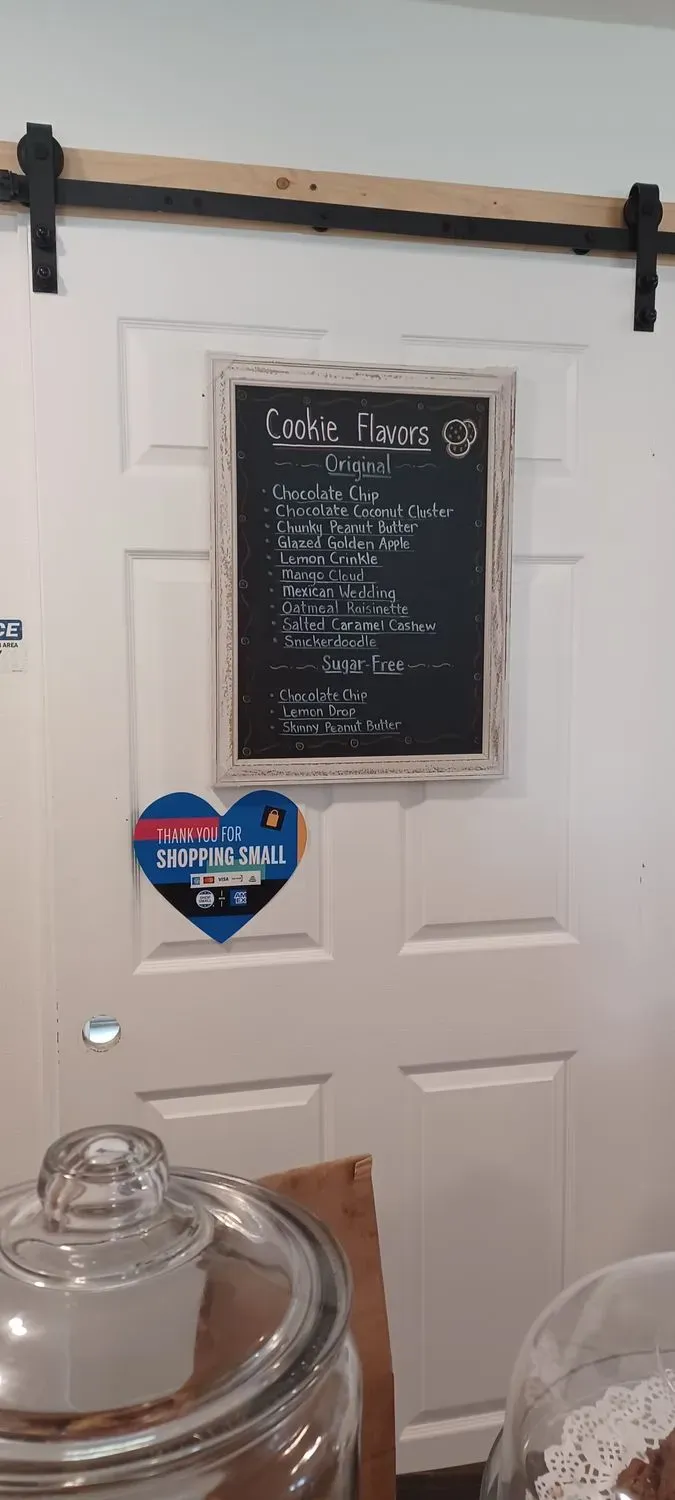 Cookie Flavors
Original
Chocolate Chip
Chocolate Coconut Cluster
Chunky Peanut Butter
Glazed Golden Apple
Lemon Crinkle
Mango Cloud
Mexican Wedding
Oatmeal Raisinette
Salted Caramel Cashew
Snickerdoodle
Sugar-Free
Chocolate Chip
Lemon Drop
Skinny Peanut Butter
CE
AREA
THANK YOU FOR
SHOPPING SMALL
VISA
SHOP SMALL
AM
EX